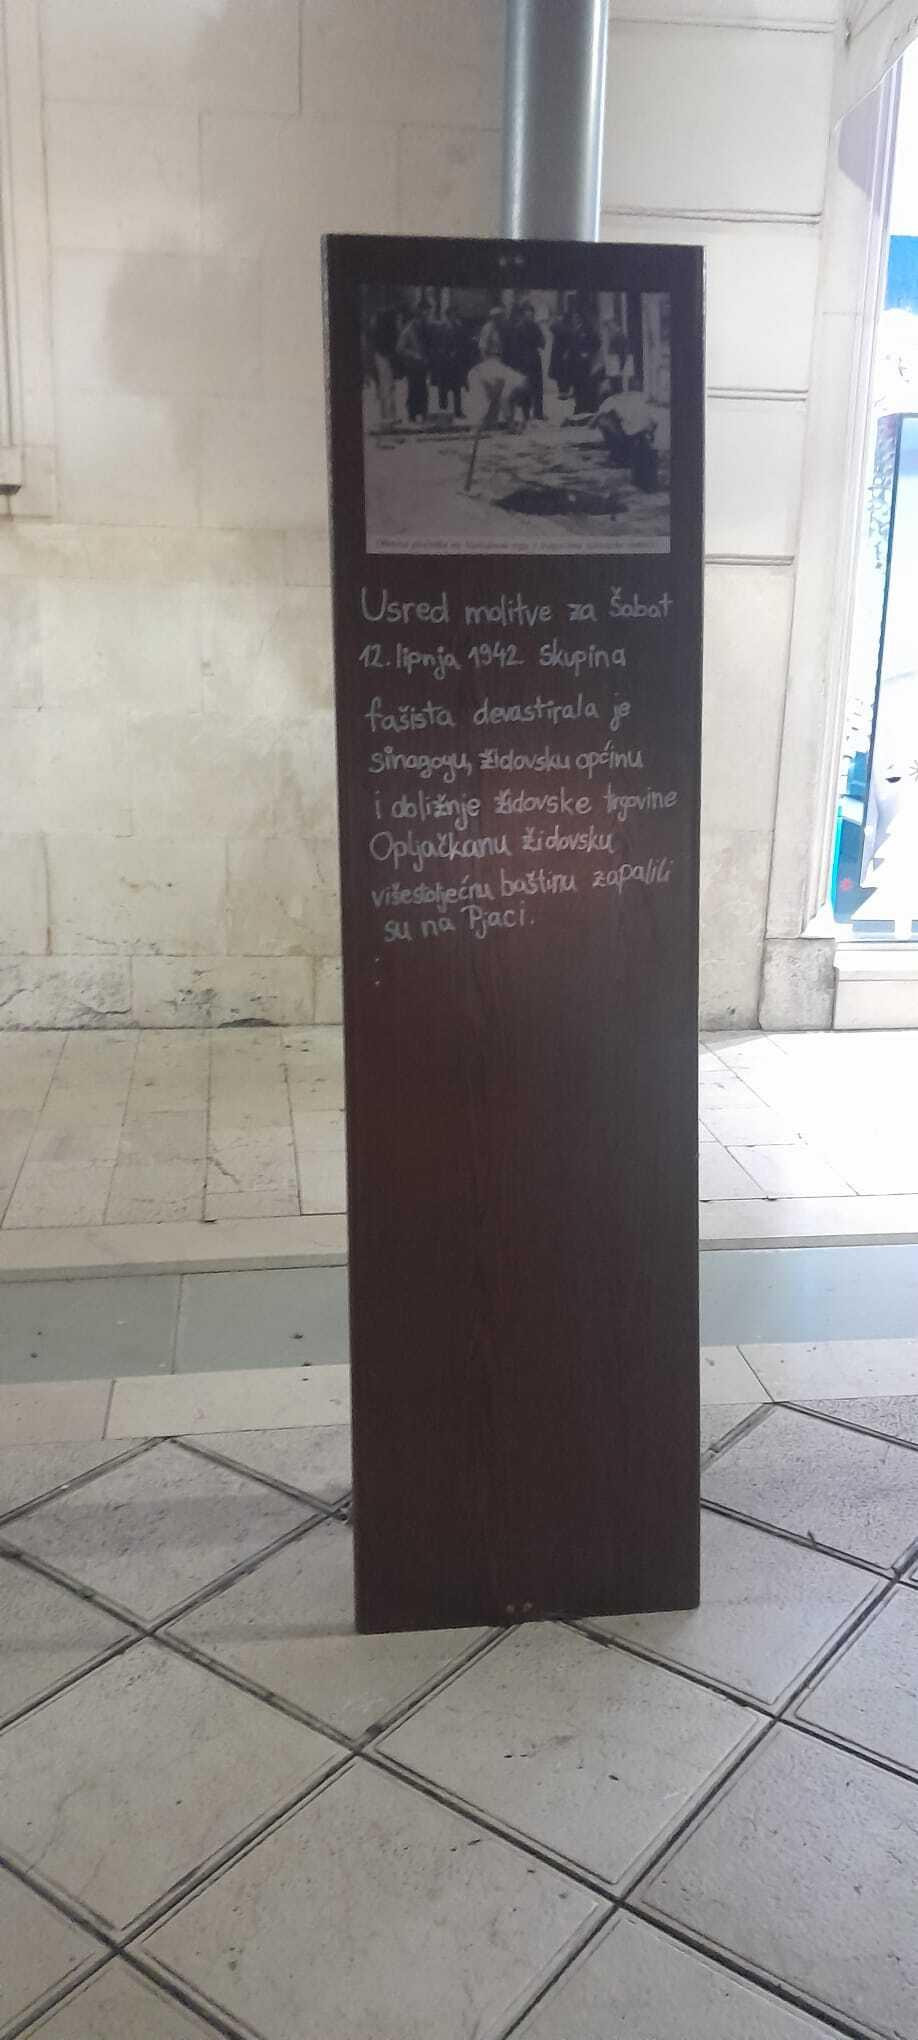 Usred molitve za Šabat
12. lipnja 1942 skupina
fašista devastirala je
sinagogu, židovsku općinu
i obližnje židovske trgovine
Opljačkanu židovsku
višestoljećnu baštinu zapalili
su na Pjaci.